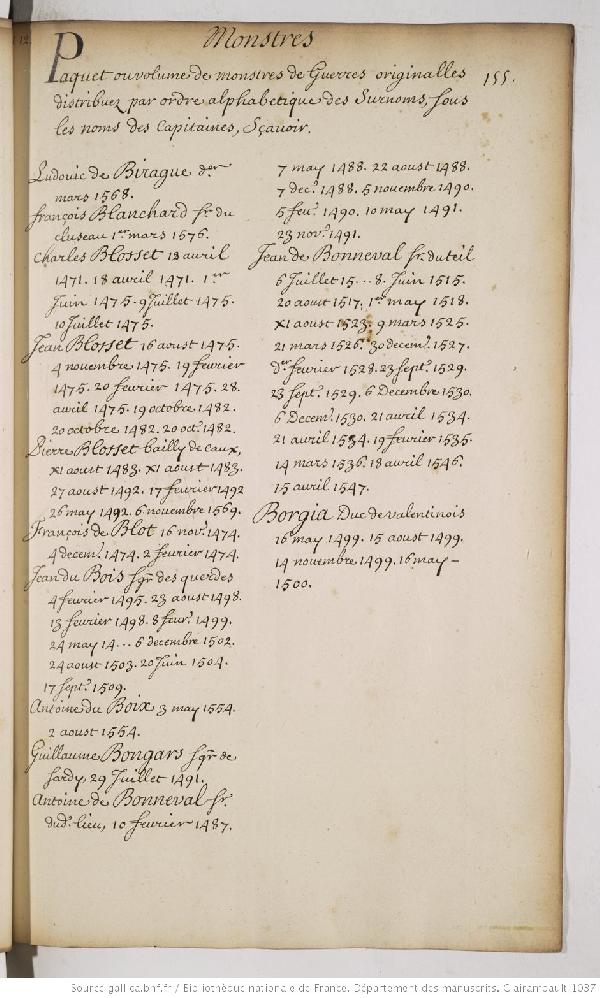 Monstres
Paquet ou volume de monstres de Guerres originalles
distribuez par ordre alphabetique des Surnoms, sous
les noms des Capitaines, Sçavoir.
155.
Ludovic de Birague der
mars 1568.
françois Blanchard sr. du
cluseau 1er mars 1576.
Charles Blosset 18 avril
1471. 18 avril 1471. 1er
Juin 1475. 9 Juillet 1475.
10 Juillet 1475.
Jean Blosset 16 aoust 1475.
4 novembre 1475. 19 fevrier
1475. 20 fevrier 1475. 28.
avril 1475. 19 octobre 1482.
20 octobre 1482. 20 oct. 1482.
Pierre Blosset bailly de caux,
XI aoust 1483. XI aoust 1483.
27 aoust 1492. 17 fevrier 1492
26 may 1492. 6 novembre 1569.
François de Blot 16 nov. 1474.
4 decem. 1474. 2 fevrier 1474.
Jean du Bois sgr. des querdes
4 fevrier 1495. 23 aoust 1498.
13 fevrier 1498. 8 fevr. 1499.
24 may 14... 6 decembre 1502.
24 aoust 1503. 20 Juin 1504.
17 sept. 1509.
Antoine du Boix 3 may 1554.
2 aoust 1554.
Guillaume Bongars sgr. de
sardy 29 Juillet 1491.
Antoine de Bonneval sr.
dud. lieu, 10 fevrier 1487.
7 may 1488. 22 aoust 1488.
7 dec. 1488. 5 novembre 1490.
5 fev. 1490. 10 may 1491.
23 nov. 1491.
Jean de Bonneval sr. du teil
6 Juillet 15... 8. Juin 1515.
20 aoust 1517. 1er may 1518.
XI aoust 1523. 9 mars 1525.
21 mars 1526. 30 decem. 1527.
der fevrier 1528. 23 sept. 1529.
23 sept. 1529. 6 Decembre 1530.
6 Decem. 1530. 21 avril 1534.
21 avril 1534. 19 fevrier 1535.
14 mars 1536. 18 avril 1546.
15 avril 1547.
Borgia Duc de valentinois
16 may 1499. 15 aoust 1499.
14 novembre 1499. 16 may –
1500.
Source gallica.bnf.fr / Bibliothèque nationale de France. Département des manuscrits. Clairambault 1087